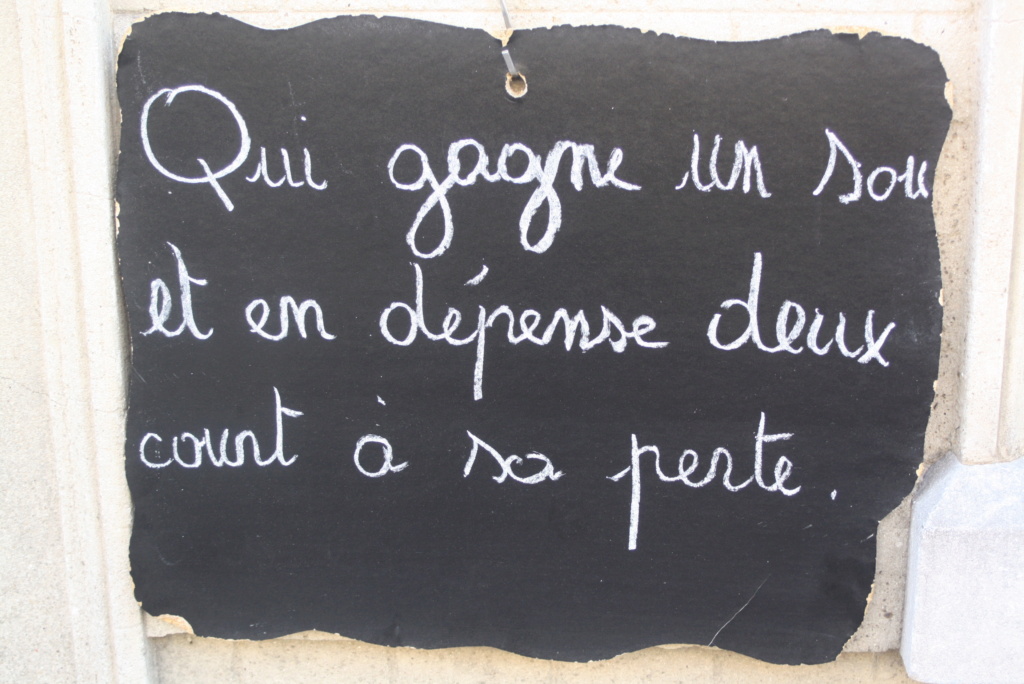 Qui gagne un sou
et en dépense deux
court à sa perte.